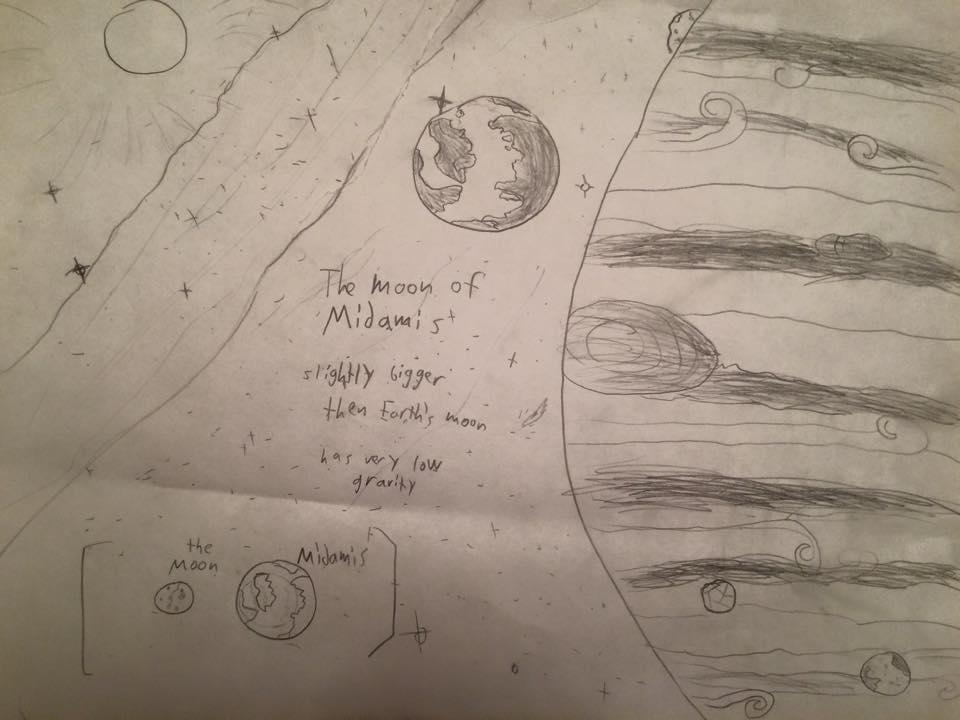 The moon of
Midamis
slightly bigger
then Earth's moon
has very low
gravity
the
Moon
Midamis